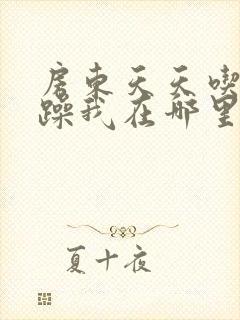 房东天天喫
躁我在哪里
夏十夜